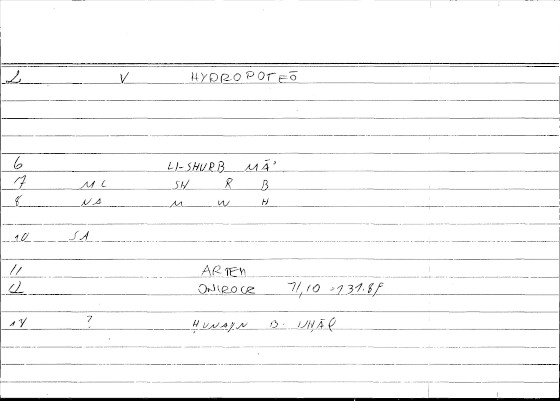 2 V HYDROPOTEŌ
6 LI-SHURB MĀʾ
7 ML SH R B
8 NA M W H
10 SA
11 ARTEM
12 ONIROCR 71,10 = 131.8f
14 ? ḤUNAYN B. ISḤĀQ